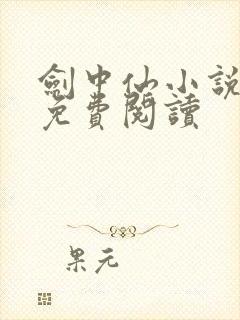 劍中仙小説
免費閱讀
果元